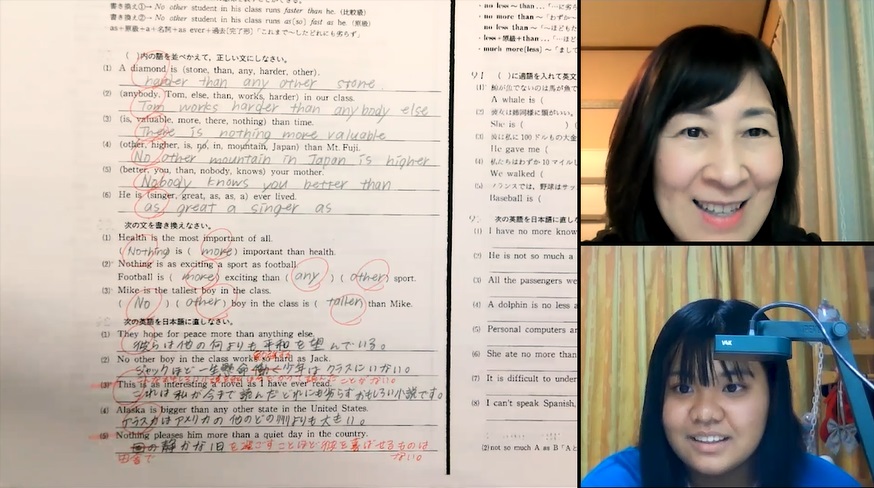 書き換え①→ No other student in his class runs faster than he. (比較級)
書き換え②→ No other student in his class runs as[so] fast as he. (原級)
as+原級+a+名詞+as ever+過去(完了形)「これまで~したどれにも劣らず」
( )内の語を並べかえて,正しい文にしなさい。
(1) A diamond is (stone, than, any, harder, other).
harder than any other stone
(2) (anybody, Tom, else, than, works, harder) in our class.
Tom works harder than anybody else
(3) (is, valuable, more, there, nothing) than time.
There is nothing more valuable
(4) (other, higher, is, no, in, mountain, Japan) than Mt. Fuji.
No other mountain in Japan is higher
(5) (better, you, than, nobody, knows) your mother.
Nobody knows you better than
(6) He is (singer, great, as, as, a) ever lived.
as great a singer as
次の文を書き換えなさい。
(1) Health is the most important of all.
(Nothing) is (more) important than health.
(2) Nothing is as exciting a sport as football.
Football is (more) exciting than (any) (other) sport.
(3) Mike is the tallest boy in the class.
(No) (other) boy in the class is (taller) than Mike.
次の英語を日本語に直しなさい。
(1) They hope for peace more than anything else.
彼らは他の何よりも平和を望んでいる。
(2) No other boy in the class works so hard as Jack.
ジャックほど一生懸命働く少年はクラスにいない。
(3) This is as interesting a novel as I have ever read.
これは私が今まで読んだどれにも劣らずおもしろい小説です。
(4) Alaska is bigger than any other state in the United States.
アラスカはアメリカの他のどの州よりも大きい。
(5) Nothing pleases him more than a quiet day in the country.
静かな1日を過ごすことほど彼を喜ばせるものは
田舎で
ない。
no less ~ than
no more than
no less than
less+原級+than
much more(less)
( )に適語を入れて英文
A whale is (
She is (
He gave me (
We walked (
Baseball is (
次の英語を日本語に直し
(1) I have no more know
(2) He is not so much a
(3) All the passengers we
(4) A dolphin is no less a
(5) Personal computers ar
(6) She ate no more than
(7) It is difficult to under
(8) I can't speak Spanish,
(2) not so much A as B「Aと